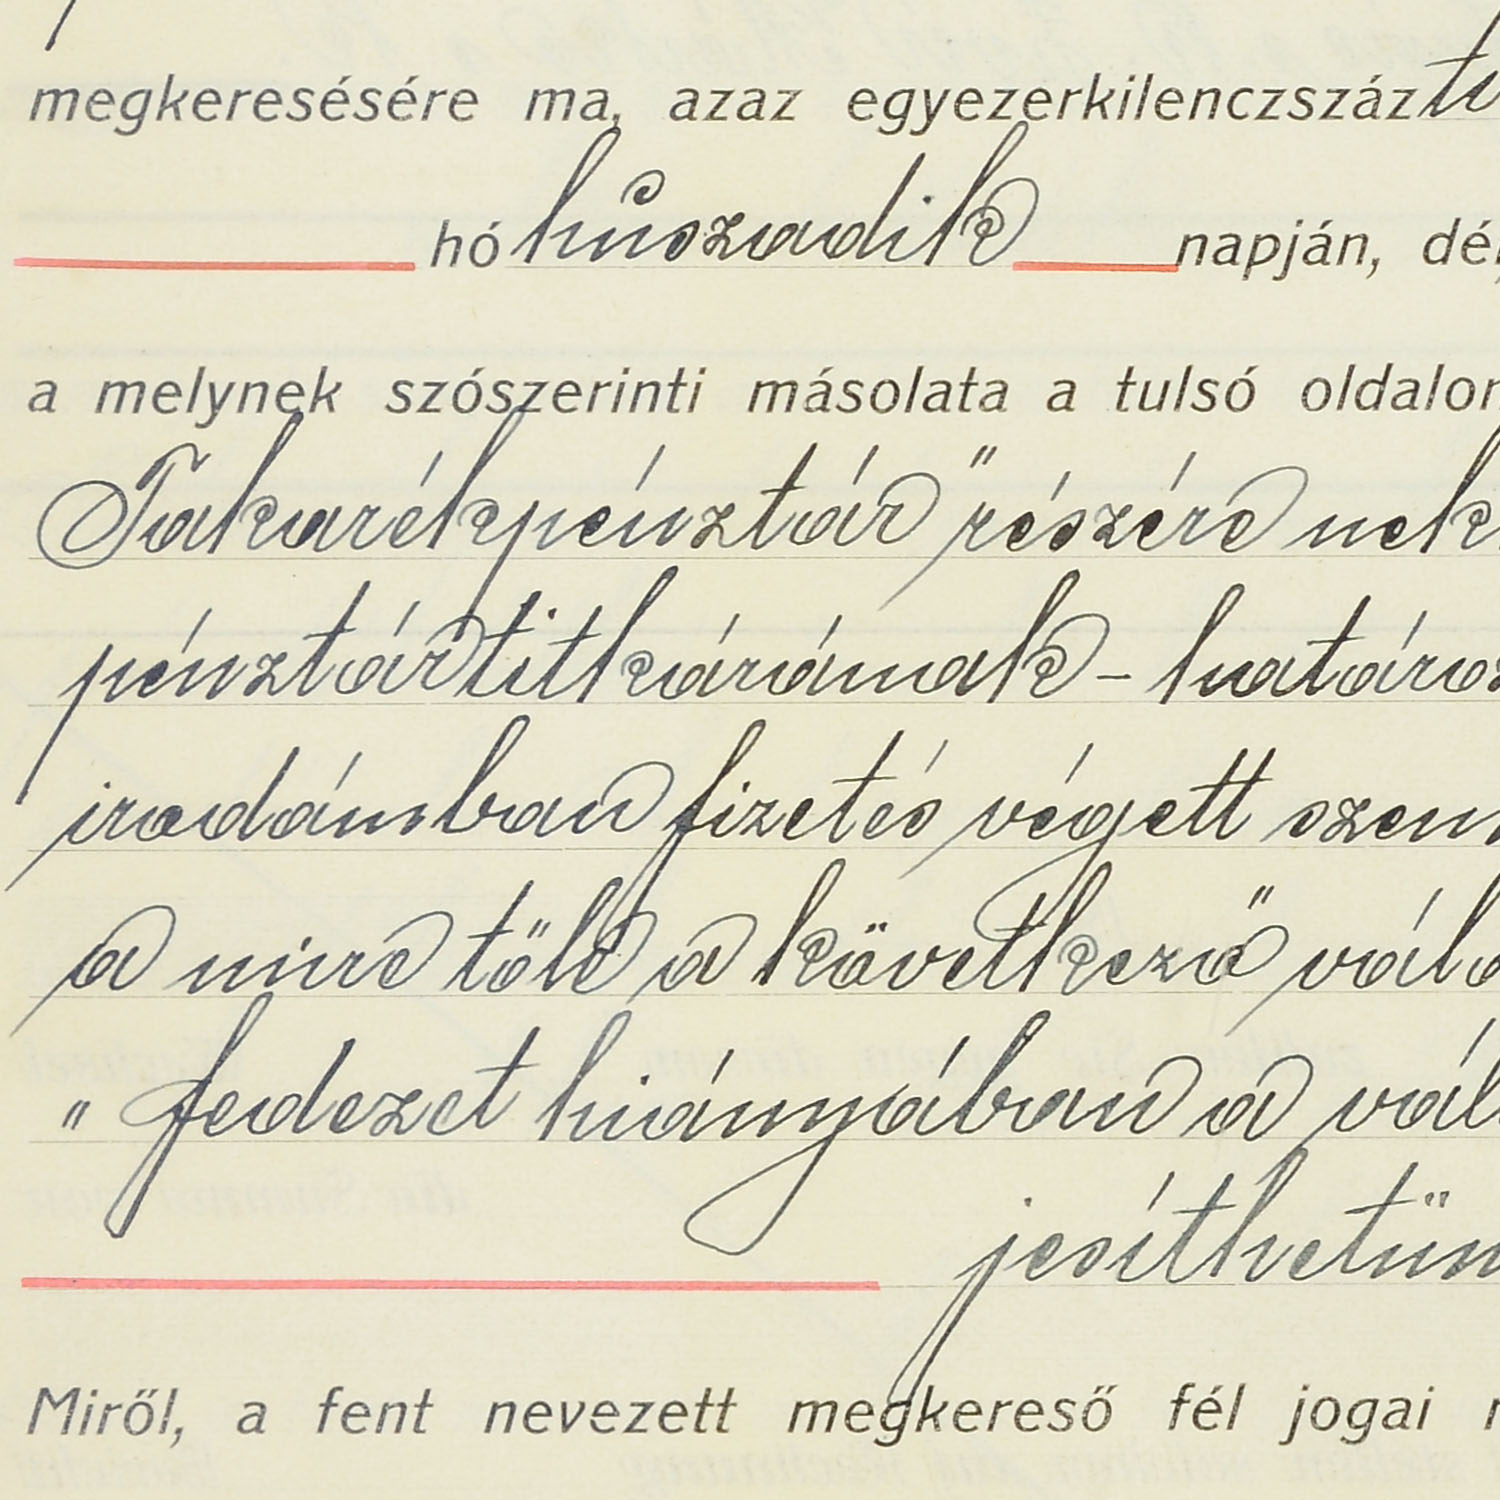 megkeresésére ma, azaz egyezerkilenczszáz
hó huszadik napján, dél
a melynek szószerinti másolata a tulsó oldalon
Takarékpénztár" részére nek
pénztár titkárának - határoz
irodámban fizetés végett szem
a mire tőle a következő vála
"fedezet hiányában a vál
jesíthetün
Miről, a fent nevezett megkereső fél jogai